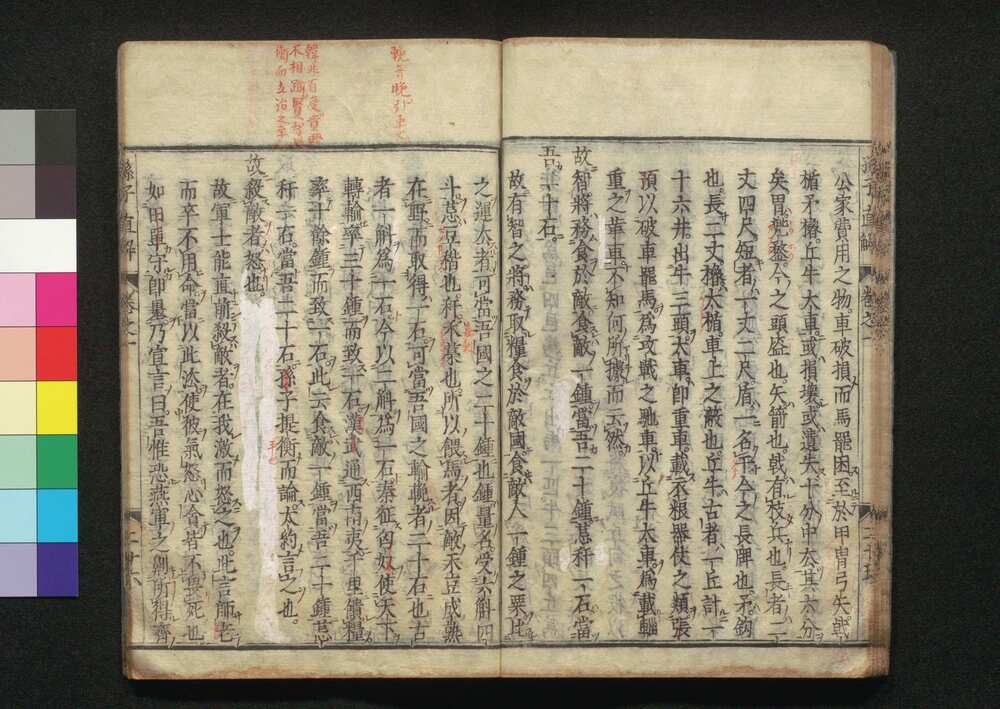 公家費用之物車破損而馬罷困至於甲冑弓矢戟
楯矛櫓丘牛大車或損壞或遺失十分中去其六分
矣胃兜鍪今之頭盔也矢箭也戟有枝兵也長者二
丈四尺短者一丈二尺盾一名干今之長牌也矛鈎
也長二丈櫓大楯車上之蔽也丘牛古者一丘計一
十六井出牛三頭大車即重車載衣糧器仗之類張
預以破車罷馬爲攻戰之馳車以丘牛大車爲載輜
重之革車不知何所據而云然
故智將務食於敵食敵一鍾當吾二十鍾𦮼秆一石當
吾二十石
故有智之將務取糧食於敵國食敵人一鍾之粟比
之運去者可當吾國之二十鍾也鍾量名受六斛四
斗𦮼豆稭也秆禾藁也所以餵馬者因敵禾豆成熟
在野而取得一石可當吾國之輸輓者二十石也古
者一斛爲一石今以二斛爲一石秦征匈奴使天下
轉輸率三十鍾而致一石漢武通西南夷千里饋糧
率十餘鍾而致一石此云食敵一鍾當吾二十鍾𦮼
秆一石當吾二十石孫子提衡而論大約言之也
故殺敵者怒也
故軍士能直前殺敵者在我激而怒之也此言師老
而卒不用命當以此法使彼氣怒心奮皆不畏死也
如田單守即墨乃宣言曰吾惟恐燕軍之劓所得齊
孫子直解
卷之一
二廿六